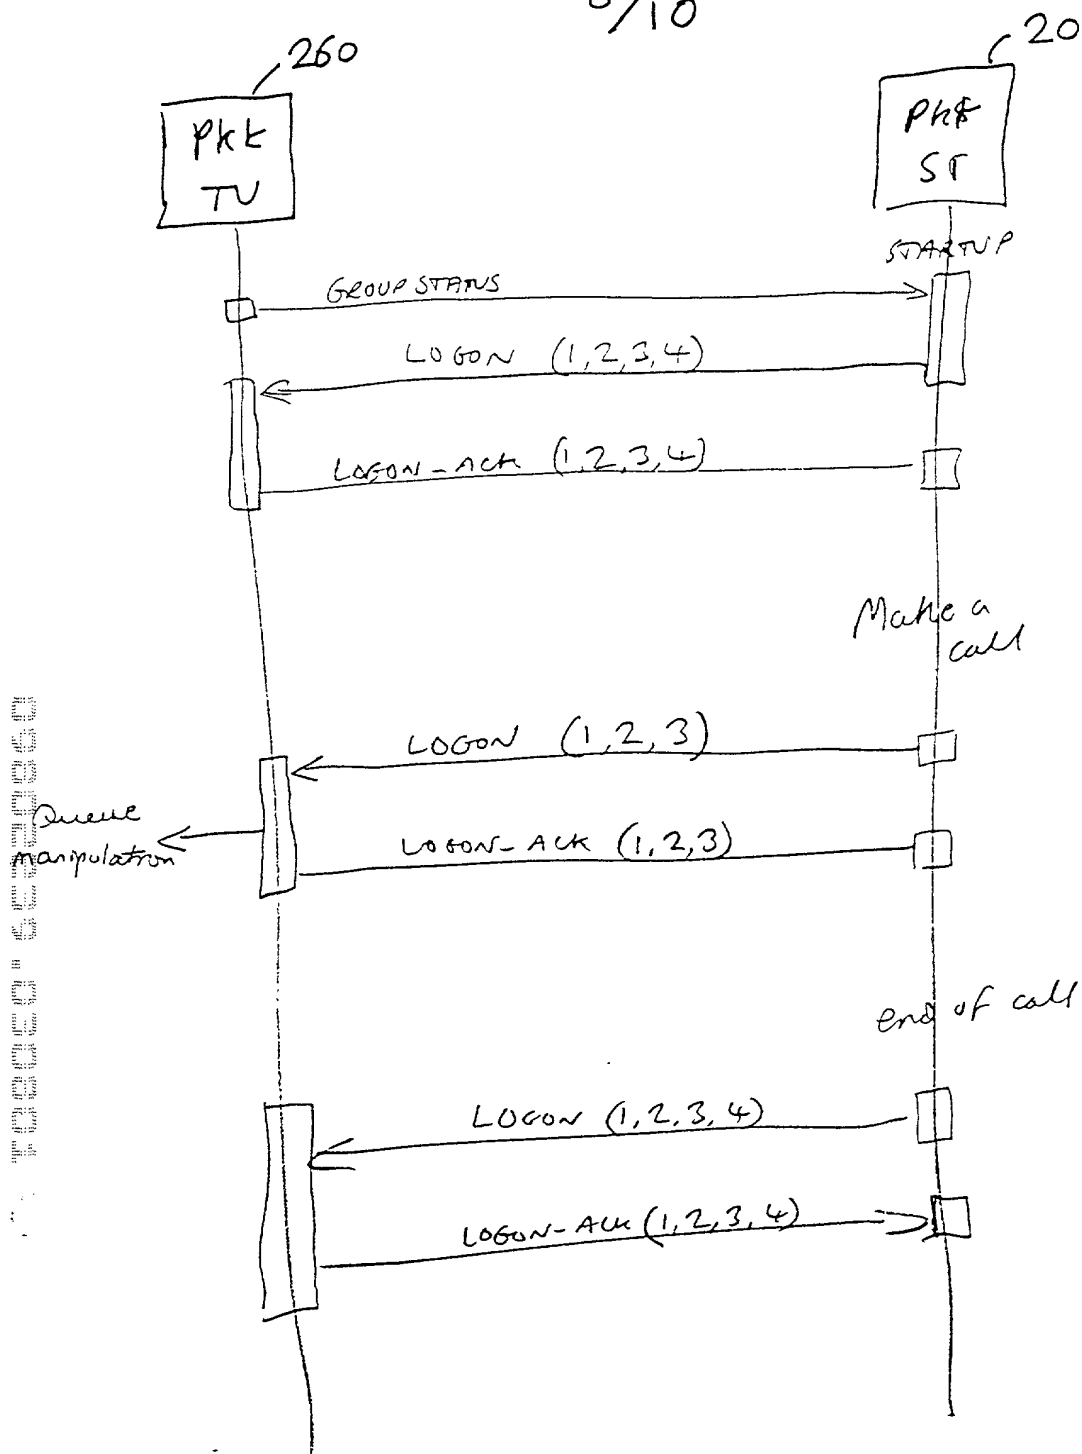 /10
260
20
Pkt
TU
Pkt
ST
STARTUP
GROUP STATUS
LOGON (1,2,3,4)
LOGON-ACK (1,2,3,4)
Make a
call
LOGON (1,2,3)
Queue
manipulation
LOGON-ACK (1,2,3)
end of call
LOGON (1,2,3,4)
LOGON-ACK (1,2,3,4)